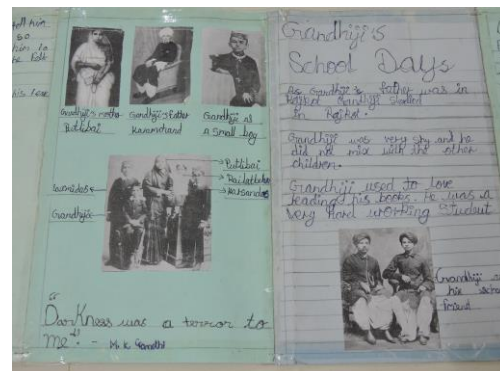 tell him
so
him to
Gandhiji's mother
Putlibai
Gandhiji's Father
Karamchand
Gandhiji as
a small boy
Putlibai
Gandhiji
"Darkness was a terror to
me". - M. K. Gandhi
Gandhiji's
School Days
As Gandhiji's father was in
Rajkot Gandhiji studied
in Rajkot.
Gandhiji was very shy and he
did not mix with the other
children.
Gandhiji used to love
reading his books. He was a
very hard working student
Gandhiji
his school
friend